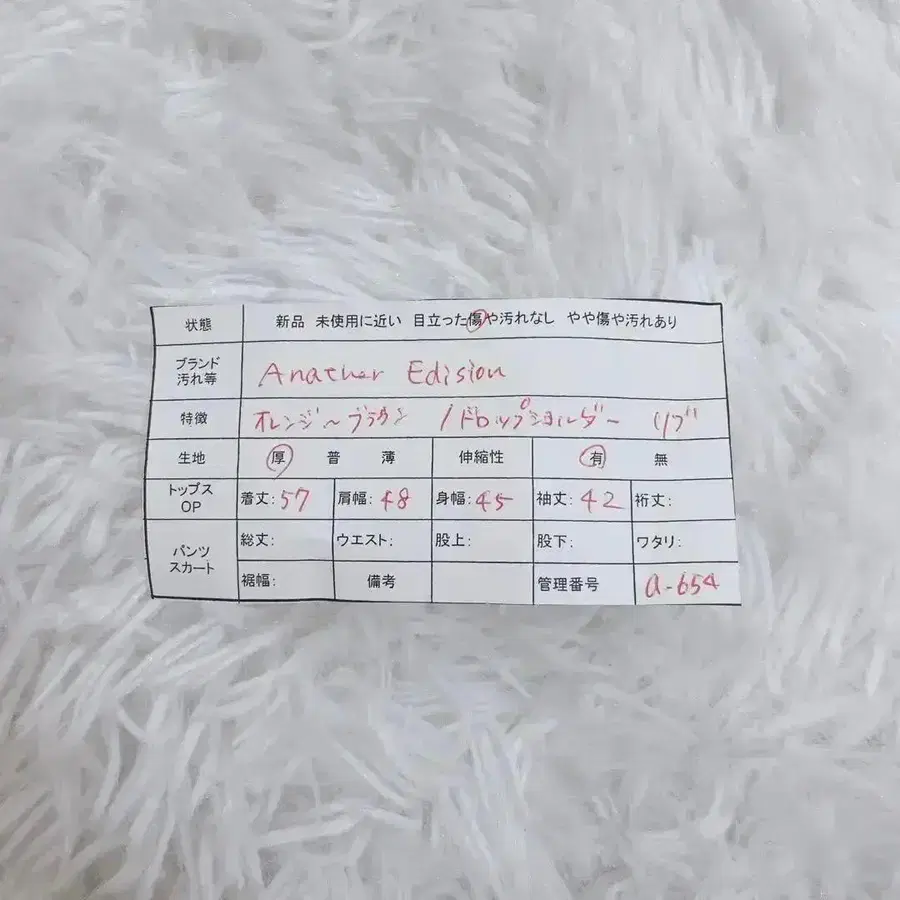 状態 新品 未使用に近い 目立った傷や汚れなし やや傷や汚れあり
ブランド
汚れ等 Anather Edision
特徴 オレンジ〜ブラウン /ドロップショルダー リブ
生地 厚 普 薄 伸縮性 有 無
トップス
OP 着丈:57 肩幅:48 身幅:45 袖丈:42 裄丈:
パンツ
スカート 総丈: ウエスト: 股上: 股下: ワタリ:
裾幅: 備考 管理番号 a-654